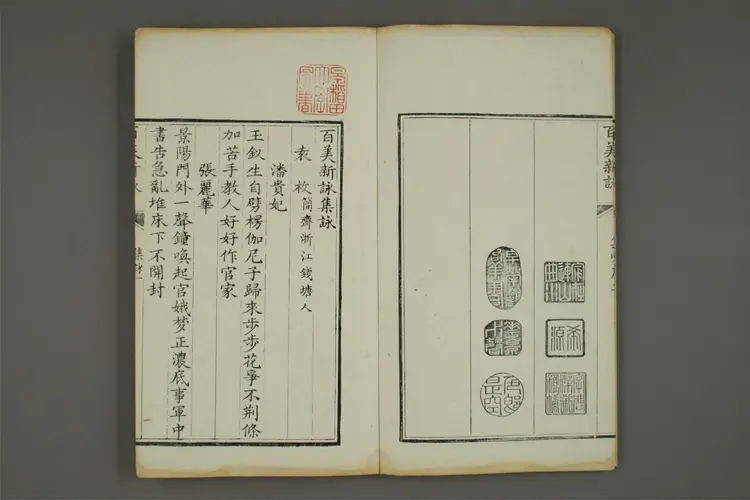 百美新詠
希源
百美新詠集詠
袁枚 簡齋浙江錢塘人
潘貴妃
玉釵生自劈楞伽尼子歸來步步花爭不荆條
加苦手教人好好作官家
張麗華
景陽門外一聲鐘喚起宫娥梦正濃底事軍中
書告急亂堆床下不開封
百美新詠
集詠